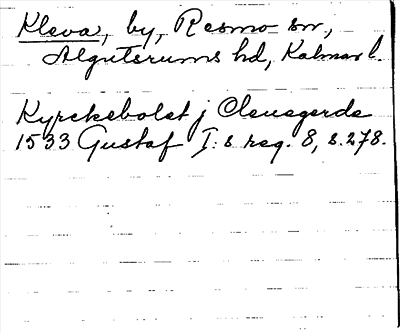 Kleva, by, Resmo sn,
Algutsrums hd, Kalmar l.
Kyrckebolet j Cleuegerde
1533 Gustaf I:s reg. 8, s. 278.